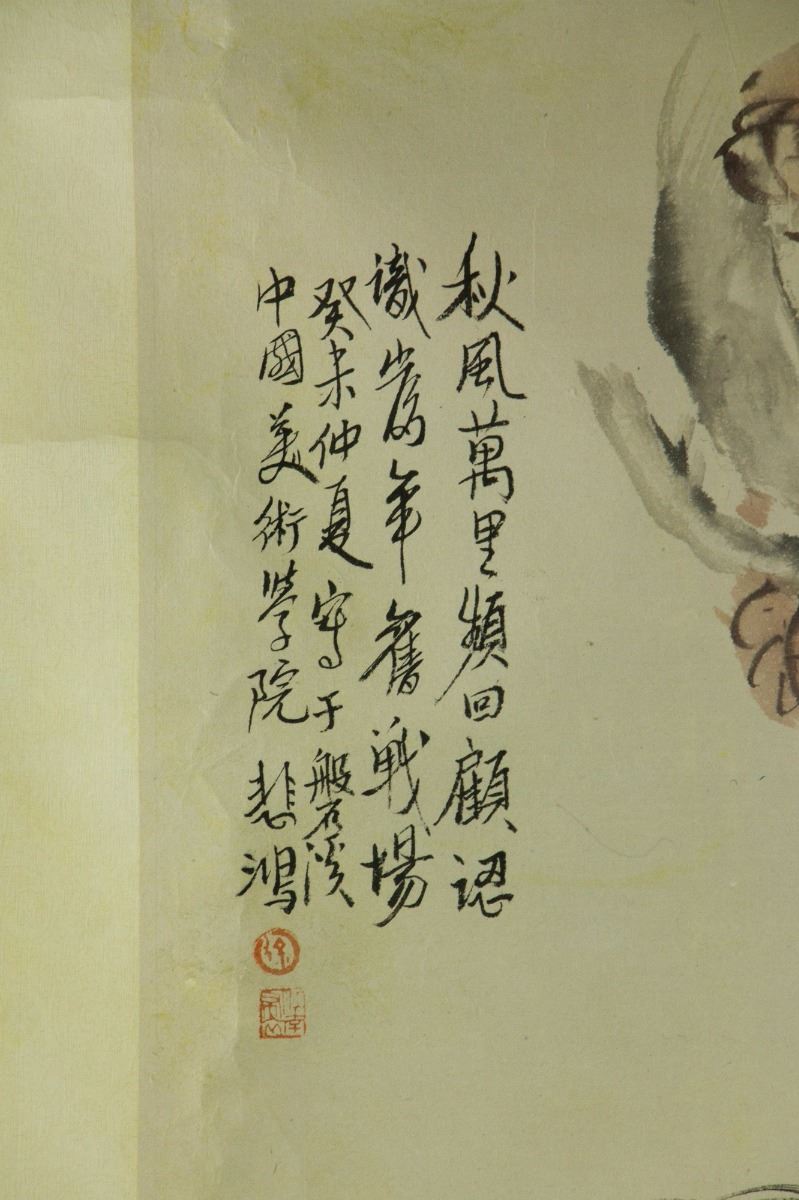 秋風萬里頻回顧認
識當年舊戰場
癸未仲夏寫于磐溪
中國美術學院 悲鴻
徐